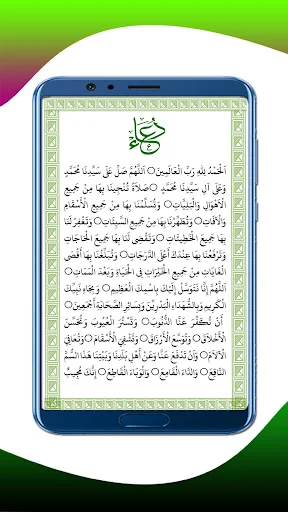 دُعَاء
اَلْحَمْدُ لِلّٰهِ رَبِّ الْعَالَمِيْنَ○ اَللّٰهُمَّ صَلِّ عَلٰى سَيِّدِنَا مُحَمَّدٍ
وَعَلٰى اٰلِ سَيِّدِنَا مُحَمَّدٍ○ صَلَاةً تُنْجِيْنَا بِهَا مِنْ جَمِيْعِ
الْاَهْوَالِ وَالْبَلِيَّاتِ○ وَتُسَلِّمُنَا بِهَا مِنْ جَمِيْعِ الْاَسْقَامِ
وَالْاٰفَاتِ○ وَتُطَهِّرُنَا بِهَا مِنْ جَمِيْعِ السَّيِّئَاتِ○ وَتَغْفِرُ لَنَا
بِهَا جَمِيْعَ الْخَطِيْئَاتِ○ وَتَقْضِى لَنَا بِهَا جَمِيْعَ الْحَاجَاتِ
وَتَرْفَعُنَا بِهَا عِنْدَكَ اَعْلَى الدَّرَجَاتِ○ وَتُبَلِّغُنَا بِهَا اَقْصَى
الْغَايَاتِ مِنْ جَمِيْعِ الْخَيْرَاتِ فِى الْحَيَاةِ وَبَعْدَ الْمَمَاتِ○
اَللّٰهُمَّ اِنَّا نَتَوَسَّلُ اِلَيْكَ بِاسْمِكَ الْعَظِيْمِ○ وَبِجَاهِ نَبِيِّكَ
الْكَرِيْمِ وَبِالشُّهَدَاءِ الْبَدْرِيِّيْنَ وَبِسَائِرِ الصَّحَابَةِ اَجْمَعِيْنَ○
اَنْ تُكَفِّرَ عَنَّا الذُّنُوْبَ○ وَتَسْتُرَ الْعُيُوْبَ وَتُحَسِّنَ
الْاَخْلَاقَ○ وَتُوَسِّعَ الْاَرْزَاقَ○ وَتَشْفِيَ الْاَسْقَامَ○ وَتُعَافِيَ
الْاٰلَامَ○ وَاَنْ تَدْفَعَ عَنَّا وَعَنْ اَهْلِ بَلَدِنَا وَبَيْتِنَا هٰذَا السَّمَّ
النَّاقِعَ○ وَالدَّاءَ الْقَامِعَ○ وَالْوَبَاءَ الْقَاطِعَ○ اِنَّكَ مُجِيْبٌ